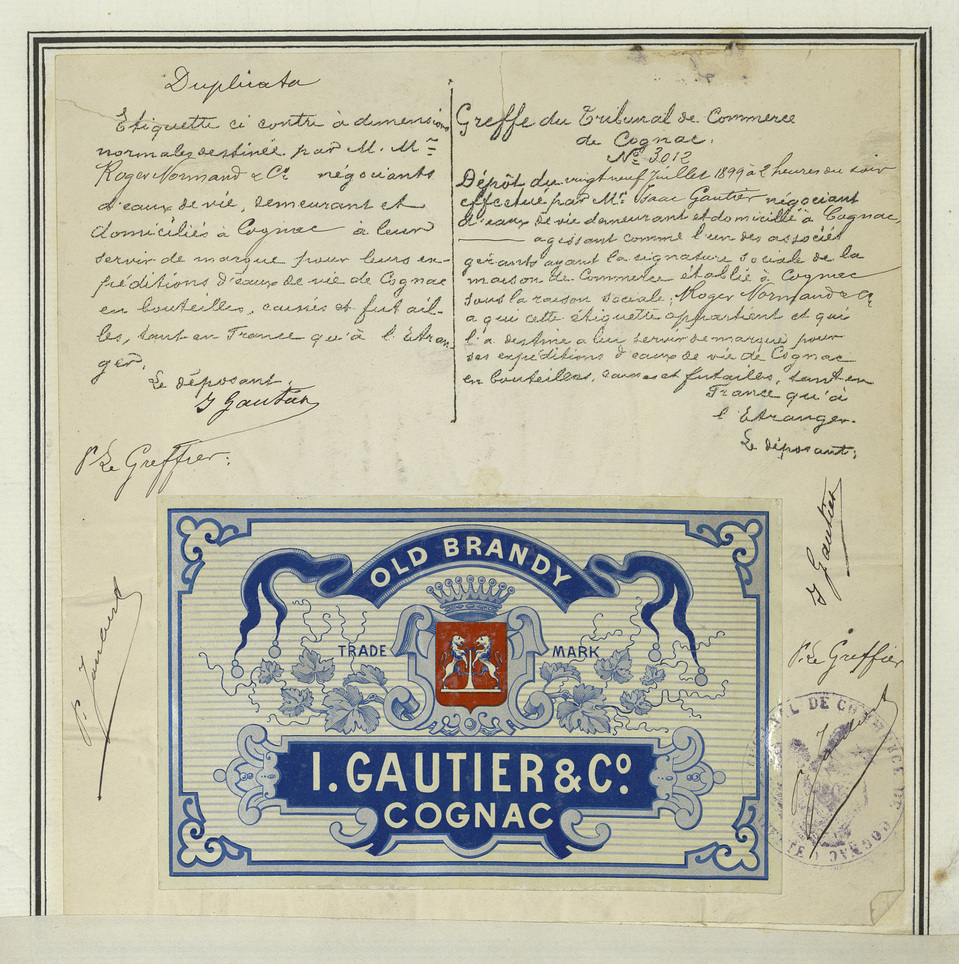 Duplicata
Etiquette ci contre à dimensions
normales destinée par M. Mrs
Roger Normand & Cie négociants
d'eaux de vie, demeurant et
domiciliés à Cognac à leur
servir de marque pour leurs ex-
péditions d'eaux de vie de Cognac
en bouteilles, caisses et futail-
les, tant en France qu'à l'Etran-
ger.
Le déposant,
I Gautier
Pr Le Greffier:
Greffe du Tribunal de Commerce
de Cognac.
No 3012
Dépôt du vingt neuf Juillet 1899 à 2 heures du soir
effectué par Mr Isaac Gautier négociant
d'eaux de vie demeurant et domicilié à Cognac,
agissant comme l'un des associés
gérants ayant la signature sociale de la
maison de Commerce établie à Cognac
sous la raison sociale; Roger Normand & Cie
a qui cette étiquette appartient et qui
l'a destine a leur servir de marque pour
ses expéditions d'eaux de vie de Cognac
en bouteilles, caisses et futailles, tant en
France qu'à
l'Etranger.
Le déposant;
I Gautier
Pr Le Greffier
OLD BRANDY
TRADE MARK
I. GAUTIER & Co.
COGNAC
TRIBUNAL DE COMMERCE DE COGNAC